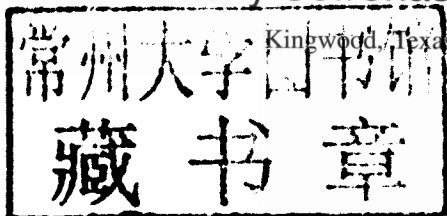 Kingwood, Texa
常州大学图书馆
藏书章